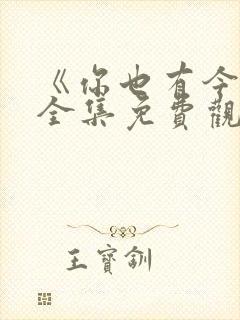 《你也有今
全集免費觀
王寶釧